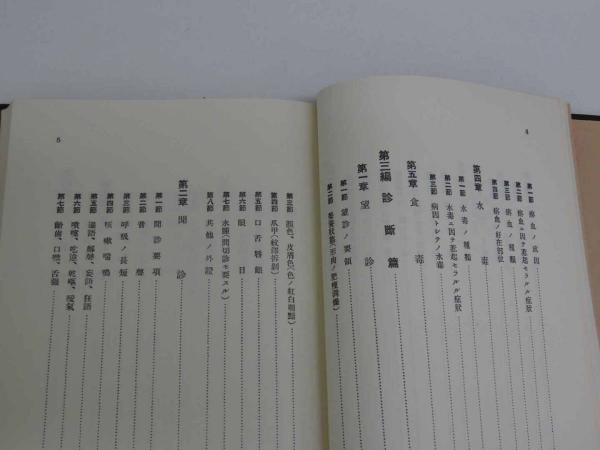 4
第一節 瘀血ノ成因
第二節 瘀血ニ因テ惹起セラルル症狀
第三節 瘀血ノ種類
第四節 瘀血ノ好在部位
第四章 水毒
第一節 水毒ノ種類
第二節 水毒ニ因テ惹起セラルル症狀
第三節 病因トシテノ水毒
第五章 食毒
第三編 診斷篇
第一章 望診
第一節 望診ノ要領
第二節 榮養狀態(形肉ノ肥瘦潤燥)
5
第三節 顏色、皮膚色(色ノ紅白明黯)
第四節 爪甲(紋部拆剝)
第五節 口舌唇齦
第六節 眼目
第七節 水腫(問切診モ要スル)
第八節 其他ノ外證
第二章 聞診
第一節 聞診要項
第二節 音聲
第三節 呼吸ノ長短
第四節 咳嗽喘鳴
第五節 譫語、鄭聲、妄語、狂語
第六節 噴嚏、吃逆、乾嘔、噯氣
第七節 齘齒、口噤、舌強